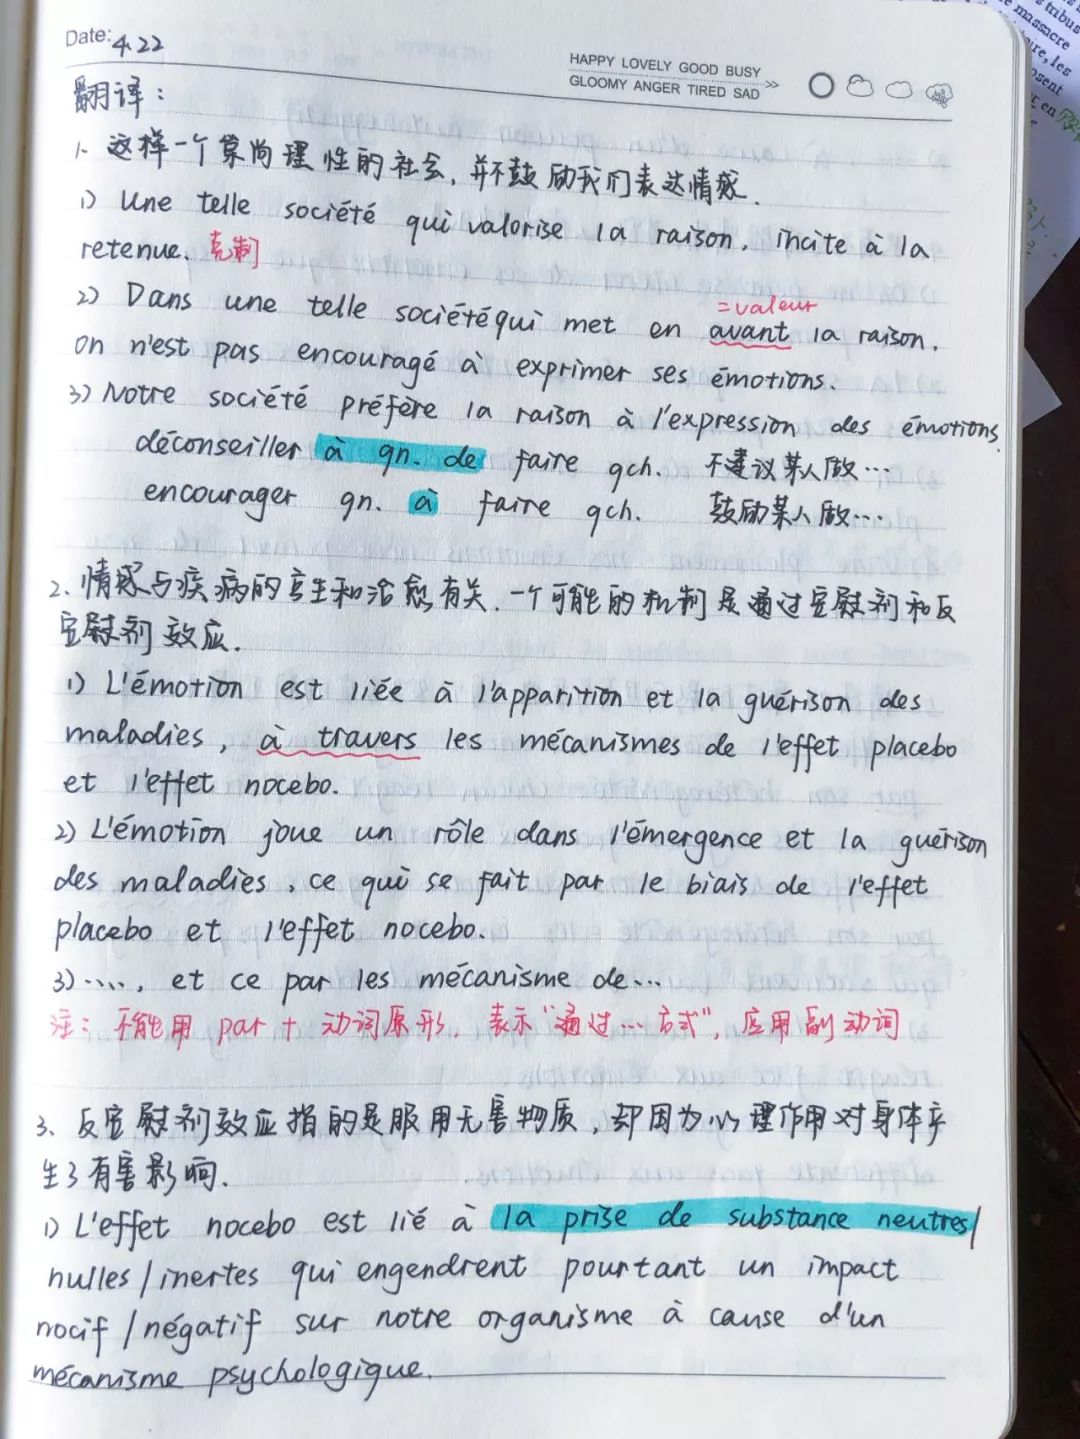 Date: 4.22
HAPPY LOVELY GOOD BUSY
GLOOMY ANGER TIRED SAD >>
翻译：
1. 这样一个崇尚理性的社会，并不鼓励我们表达情感.
1) Une telle société qui valorise la raison, incite à la
retenue. 克制
2) Dans une telle société qui met en avant la raison,
=valeur
on n'est pas encouragé à exprimer ses émotions.
3) Notre société préfère la raison à l'expression des émotions.
déconseiller à qn. de faire qch. 不建议某人做…
encourager qn. à faire qch. 鼓励某人做…
2. 情感与疾病的产生和治愈有关，一个可能的机制是通过安慰剂和反
安慰剂效应.
1) L'émotion est liée à l'apparition et la guérison des
maladies, à travers les mécanismes de l'effet placebo
et l'effet nocebo.
2) L'émotion joue un rôle dans l'émergence et la guérison
des maladies, ce qui se fait par le biais de l'effet
placebo et l'effet nocebo.
3) ....., et ce par les mécanisme de...
注：不能用 par + 动词原形，表示“通过…方式”，应用副动词
3、反安慰剂效应指的是服用无害物质，却因为心理作用对身体产
生了有害影响.
1) L'effet nocebo est lié à la prise de substance neutres/
nulles/inertes qui engendrent pourtant un impact
nocif/négatif sur notre organisme à cause d'un
mécanisme psychologique.
massacre